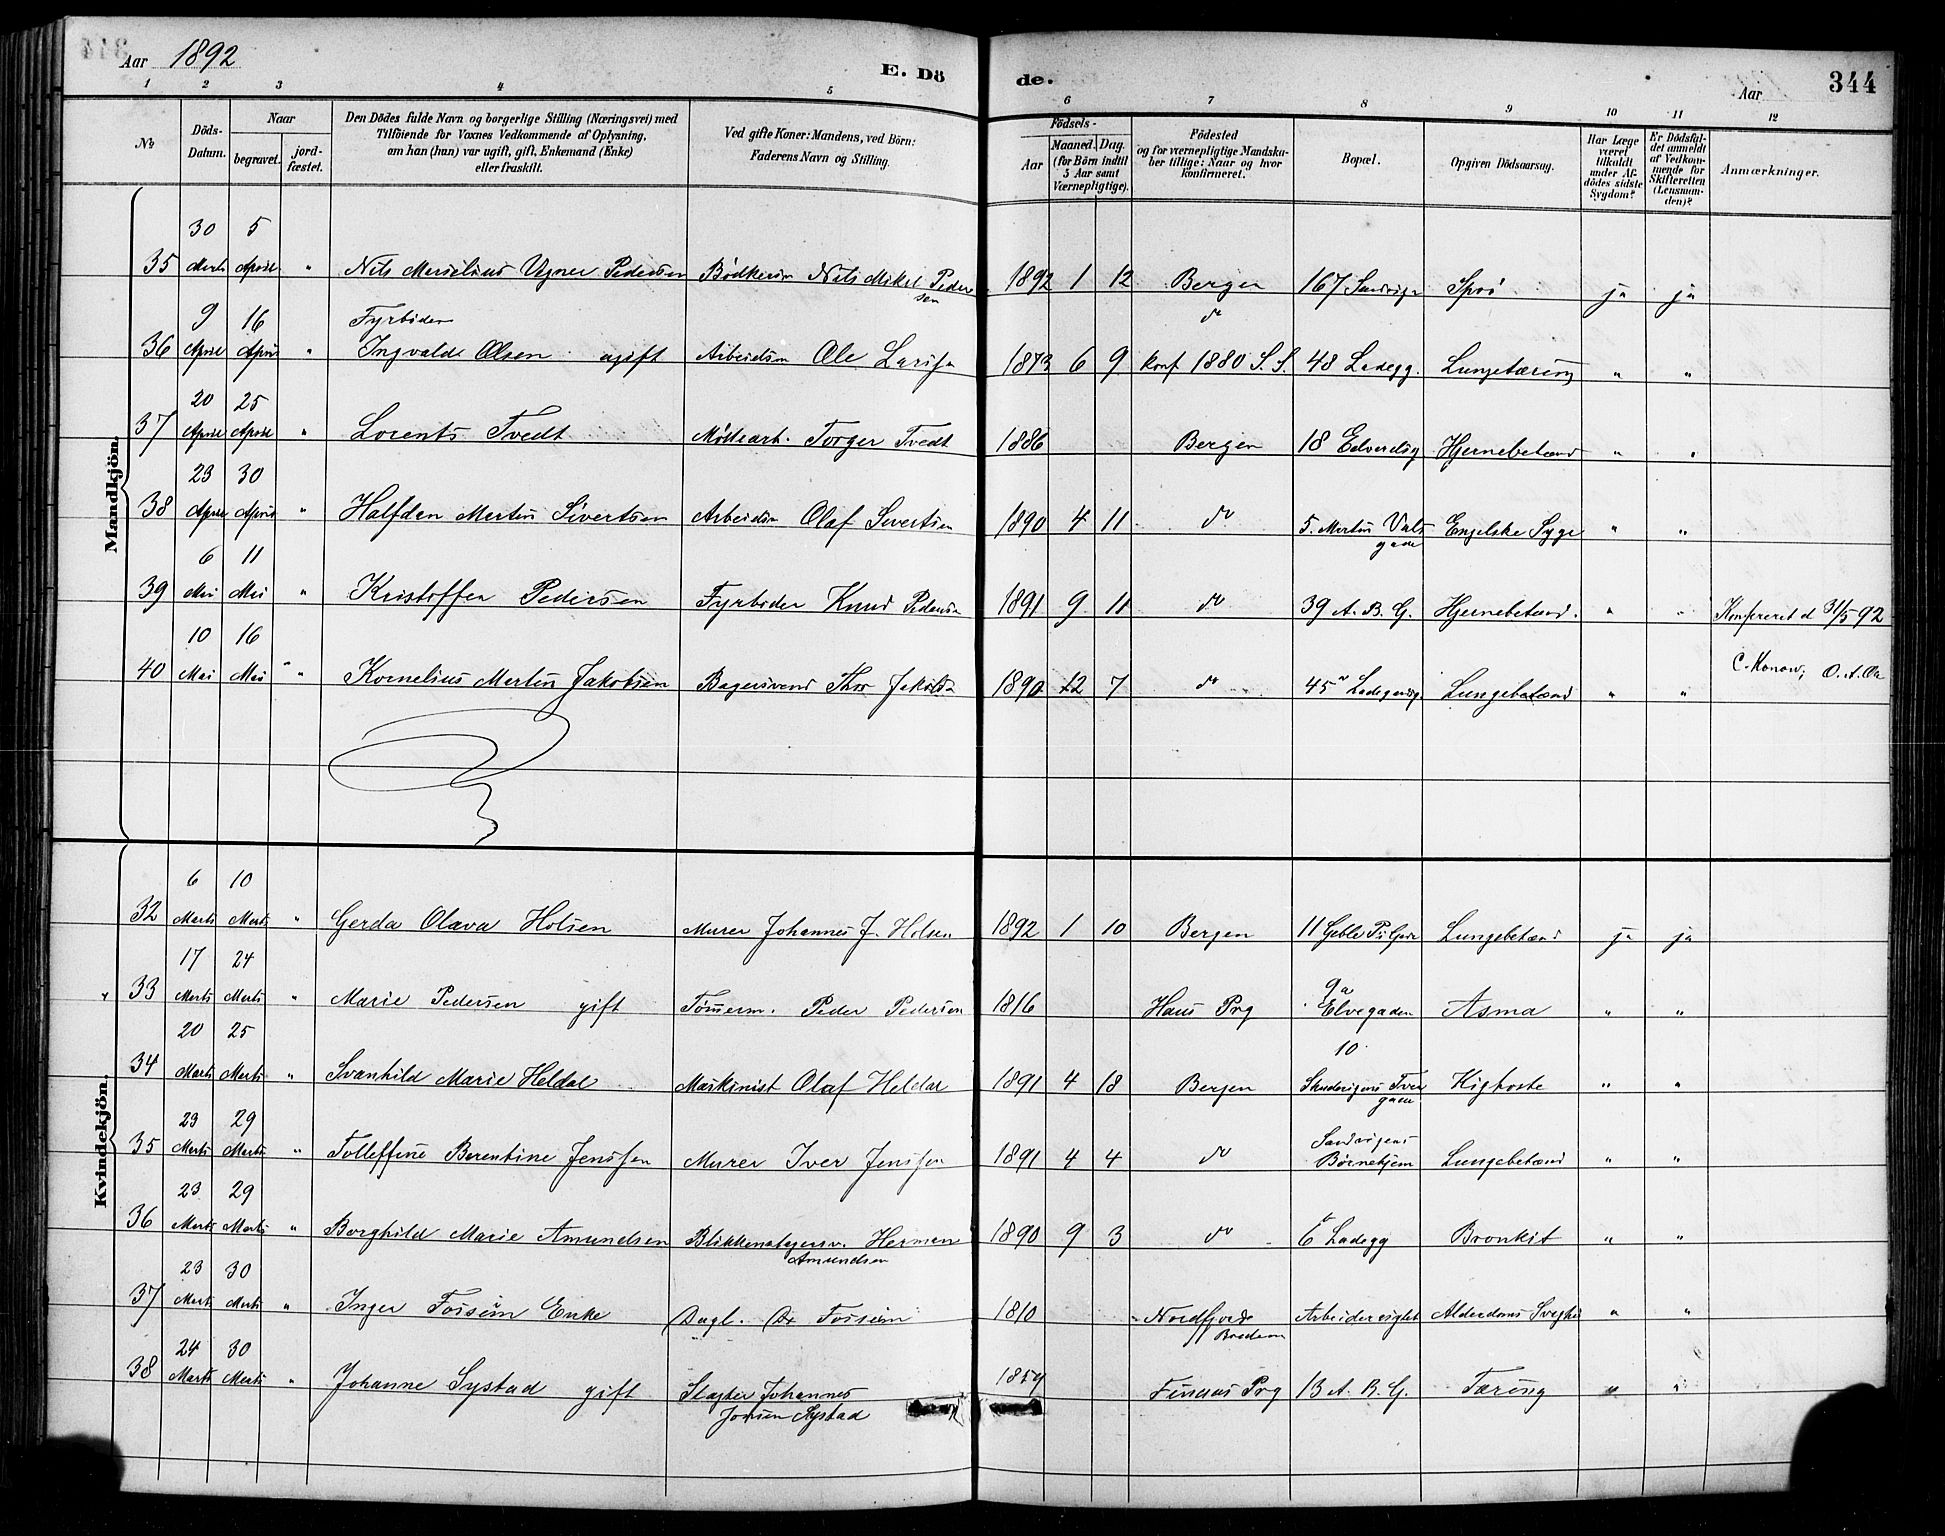 Aar 1892
E. Dö
de.
Aar
344
1 2 3 4 5 6 7 8 9 10 11 12
No
Döds-
Datum.
Naar
begravet.
jord-
fæstet.
Den Dödes fulde Navn og borgerlige Stilling (Næringsvei) med
Tilföiende for Voxnes Vedkommende af Oplysning,
om han (hun) var ugift, gift, Enkemand (Enke)
eller fraskilt.
Ved gifte Koner: Mandens, ved Börn:
Faderens Navn og Stilling.
Födsels-
Aar
Maaned. Dag.
(for Börn indtil
5 Aar samt
Værnepligtige).
Födested
og for værnepligtige Mandska-
ber tillige: Naar og hvor
konfirmeret.
Bopæl.
Opgiven Dödsaarsag.
Har Læge
været
tilkaldt
under Af-
dödes sidste
Sygdom?
Er Dödsfal-
det anmeldt
af Vedkom-
mende for
Skifteretten
(Lensman-
den)?
Anmærkninger.
Mandkjön.
30 5
35 Marts April " Nils Marselius Vagner Pedersen Bödkersv Nils Mikel Peder
sen
1892 1 12 Bergen 167 Sandvign ja ja
9 16 Fyrböder do
36 April April " Ingvald Olsen ugift Arbeidsm Ole Larsen 1873 6 9 konf 1880 S. S. 48 Ladegg. Lungetæring " "
20 25
37 April April " Lorents Tvedt Torger Tvedt 1886 Bergen 18 Edvardsg Hjernebetænd " "
23 30
38 April April " Halfdan Martin Sivertsen Arbeidsm Olaf Sivertsen 1890 4 11 do 5 Martin Vals Engelske Syge " "
gade
6 11
39 Mai Mai " Kristoffer Pedersen Fyrböder Knud Pedersen 1891 9 11 do 39 A. B. G. Hjernebetænd. " " Konfereret d 31/5-92
10 16
C. Konow, O. A. Oa
40 Mai Mai " Kornelius Martin Jakobsen Bagersvend Jakobsen 1890 12 7 do 45 Ladegaardsg Lungebetænd " "
Kvindekjön.
6 10
32 Marts Marts " Gerda Olava Holsen Murer Johannes J. Holsen 1892 1 10 Bergen 11 Geble Ps Gade Lungebetænd ja ja
17 24 9a
33 Marts Marts " Marie Pedersen gift Tömerm. Peder Pedersen 1816 Haus Prg Elvegaden Asma " "
20 25 10
34 Marts Marts " Svanhild Marie Heldal Maskinist Olaf Heldal 1891 4 18 Bergen Skudevigens Tver Kighoste " "
gade
23 29 Sandvigens
35 Marts Marts " Tolleffine Berentine Jenssen Murer Iver Jenssen 1891 4 4 do Börnehjem Lungebetænd " "
23 29
36 Marts Marts " Borghild Marie Amundsen Blikkenslagersv. Herman 1890 9 3 do 6 Ladegg Bronkit " "
Amundsen
23 30
37 Marts Marts " Inger Fossum Enke Dagl. Fossum 1810 Nordfjord Arbeidervigtet Alderdoms Svaghed " "
Bredem
24 30
38 Marts Marts " Johanne Systad gift Slagter Johannes 1859 Findaas Prg 13 A. B. G. Tæring " "
Jonsen Systad